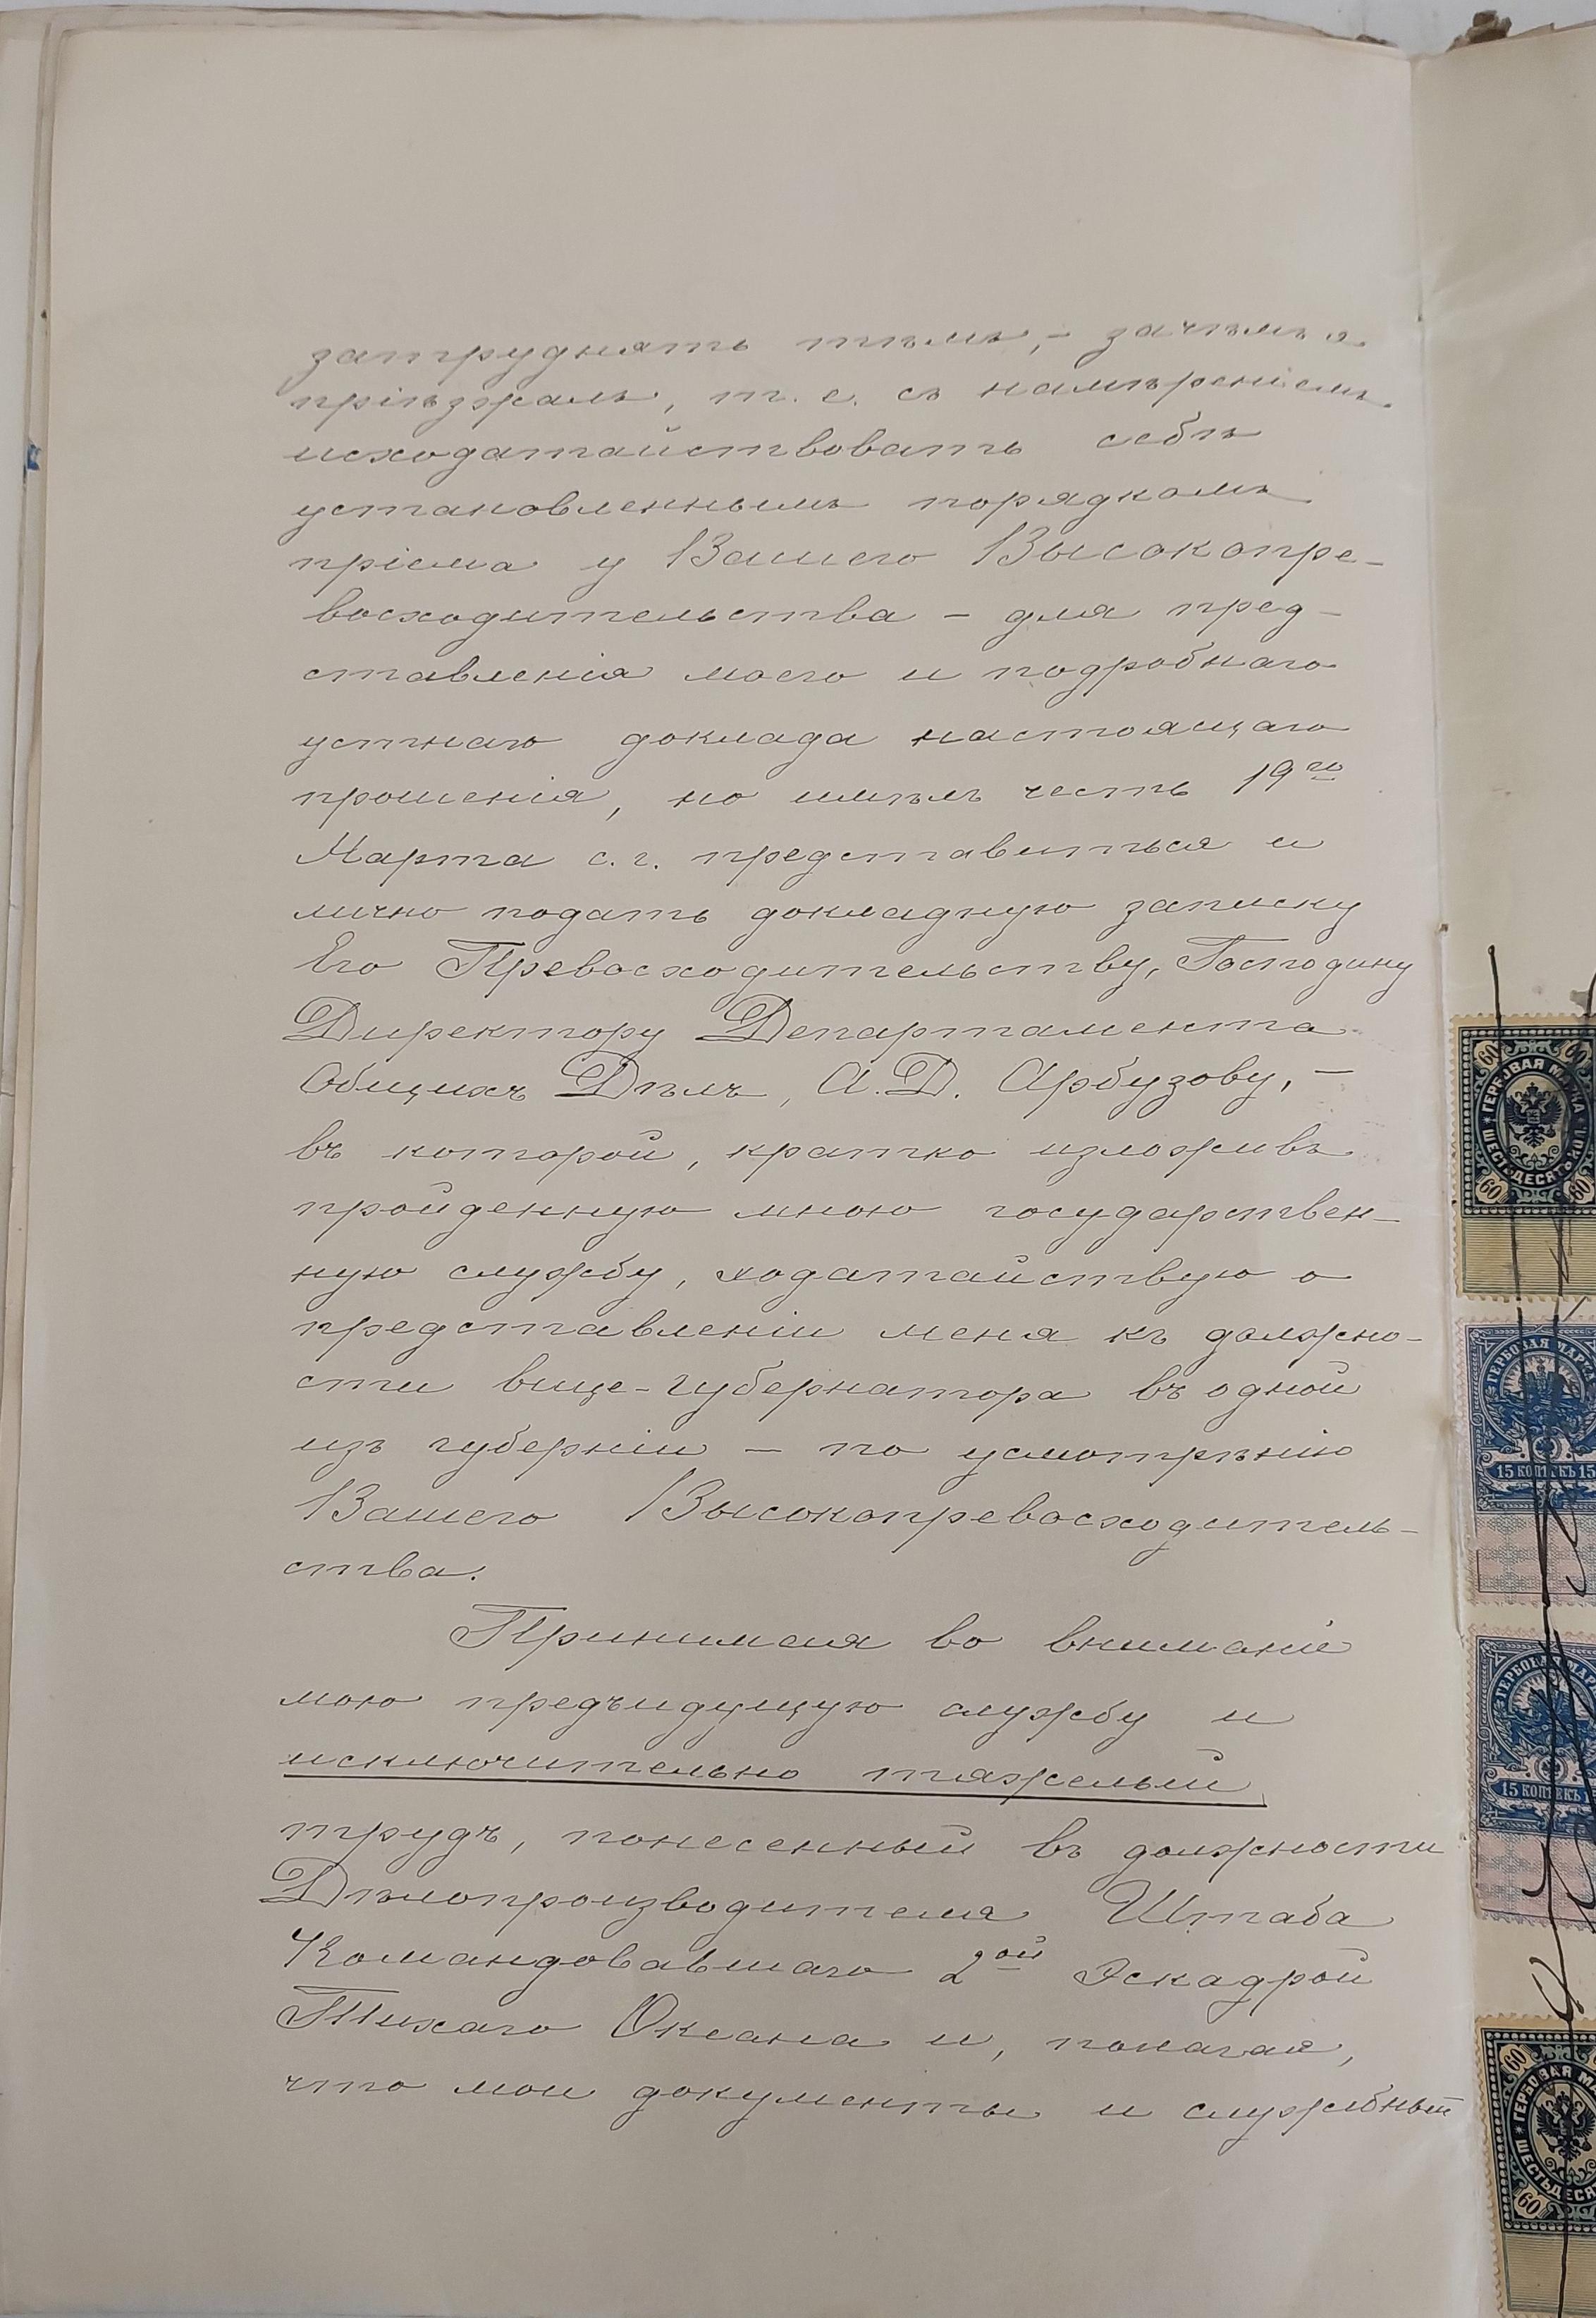 затруднять тѣмъ, – зачѣмъ я
пріѣзжалъ, т. е. съ намѣреніемъ
исходатайствовать себѣ
установленнымъ порядкомъ
пріема у Вашего Высокопре-
восходительства – для пред-
ставленія моего и подробнаго
устнаго доклада настоящаго
прошенія, но имѣлъ честь 19го
Марта с. г. представиться и
лично подать докладную записку
Его Превосходительству, Господину
Директору Департамента
Общихъ Дѣлъ, А. Д. Арбузову, –
въ которой, кратко изложивъ
пройденную мною государствен-
ную службу, ходатайствую о
представленіи меня къ должно-
сти вице-губернатора въ одной
изъ губерніи – по усмотрѣнію
Вашего Высокопревосходитель-
ства.
Принимая во вниманіе
мою предъидущую службу и
исключительно тяжелый
трудъ, понесенный въ должности
Дѣлопроизводителя Штаба
Командовавшаго 2ой Эскадрой
Тихаго Океана и, полагая,
что мои документы и служебный
ГЕРБОВАЯ МАРКА
ШЕСТЬДЕСЯТЪ КОП.
60 60
60 60
ГЕРБОВАЯ МАРК
15 КОПѢЕКЪ 15
ГЕРБОВАЯ МАРК
15 КОПѢЕКЪ
60
ГЕРБОВАЯ МА
ШЕСТЬДЕСЯ
60